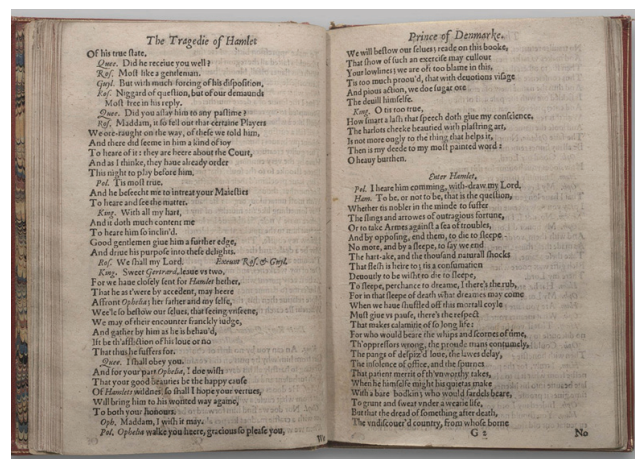 The Tragedie of Hamlet
Of his true state.
Quee. Did he receiue you well?
Ros. Most like a gentleman.
Guyl. But with much forcing of his disposition,
Ros. Niggard of question, but of our demaunds
Most free in his reply.
Quee. Did you assay him to any pastime?
Ros. Maddam, it so fell out that certaine Players
We ore-raught on the way, of these we told him,
And there did seeme in him a kind of ioy
To heare of it: they are heere about the Court,
And as I thinke, they haue already order
This night to play before him.
Pol. Tis most true,
And he beseecht me to intreat your Maiesties
To heare and see the matter.
King. With all my hart,
And it doth much content me
To heare him so inclin'd.
Good gentlemen giue him a further edge,
And driue his purpose into these delights.
Ros. We shall my Lord. Exeunt Ros. & Guyl.
King. Sweet Gertrard, leaue vs two,
For we haue closely sent for Hamlet hether,
That he as t'were by accedent, may heere
Affront Ophelia; her father and my selfe,
Wee'le so bestow our selues, that seeing vnseene,
We may of their encounter franckly iudge,
And gather by him as he is behau'd,
Ift be th'affliction of his loue or no
That thus he suffers for.
Quee. I shall obey you.
And for your part Ophelia, I doe wish
That your good beauties be the happy cause
Of Hamlets wildnes, so shall I hope your vertues,
Will bring him to his wonted way againe,
To both your honours.
Oph. Maddam, I wish it may.
Pol. Ophelia walke you heere, gracious so please you,
We
Prince of Denmarke.
We will bestow our selues; reade on this booke,
That show of such an exercise may cullour
Your lowlines; we are oft too blame in this,
Tis too much proou'd, that with deuotions visage
And pious action, we doe sugar ore
The deuill himselfe.
King. O tis too true,
How smart a lash that speech doth giue my conscience.
The harlots cheeke beautied with plastring art,
Is not more ougly to the thing that helps it,
Then is my deede to my most painted word:
O heauy burthen.
Enter Hamlet.
Pol. I heare him comming, with-draw my Lord.
Ham. To be, or not to be, that is the question,
Whether tis nobler in the minde to suffer
The slings and arrowes of outragious fortune,
Or to take Armes against a sea of troubles,
And by opposing, end them, to die to sleepe
No more, and by a sleepe, to say we end
The hart-ake, and the thousand naturall shocks
That flesh is heire to; tis a consumation
Deuoutly to be wisht to die to sleepe,
To sleepe, perchance to dreame, I there's the rub,
For in that sleepe of death what dreames may come
When we haue shuffled off this mortall coyle
Must giue vs pause, there's the respect
That makes calamitie of so long life:
For who would beare the whips and scornes of time,
Th'oppressors wrong, the proude mans contumely,
The pangs of despiz'd loue, the lawes delay,
The insolence of office, and the spurnes
That patient merrit of th'vnworthy takes,
When he himselfe might his quietas make
With a bare bodkin; who would fardels beare,
To grunt and sweat vnder a wearie life,
But that the dread of something after death,
The vndiscouer'd country, from whose borne
G 2 No